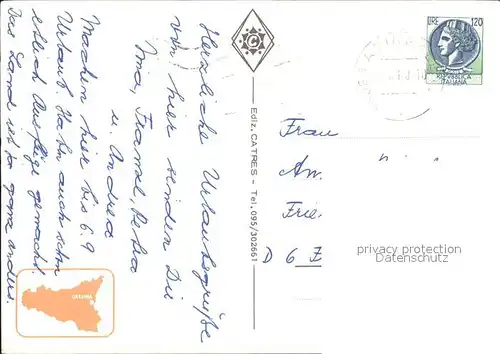 Herzliche Urlaubsgrüße
von hier senden Dir
Irma, Franzl, Petra
u. Andrea
Machen hier bis 6.9
Urlaub. Haben auch schon
etlich Ausflüge gemacht.
Das Land ist ja ganz anders.
CATANIA
Ediz. CATRES - Tel. 095/302661
LIRE 120
REPUBBLICA
ITALIANA
Frau
An.
Frie
D 6
privacy protection
Datenschutz